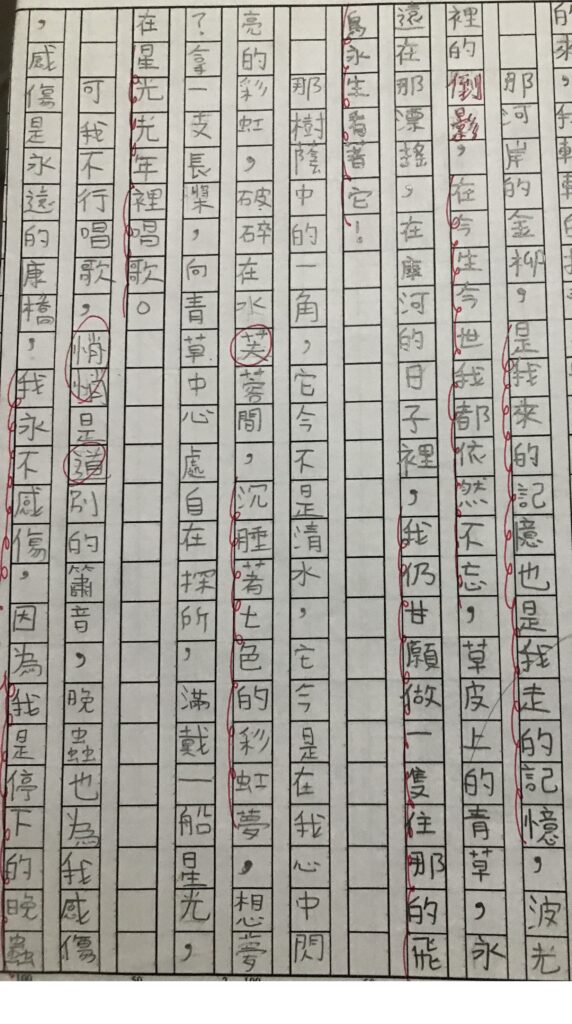 那河岸的金柳，是我來的記憶也是我走的記憶，波光
裡的倒影，在今生今世我都依然不忘，草皮上的青草，永
遠在那漂搖，在康河的日子裡，我仍甘願做一隻住那的飛
鳥永生看著它！
那樹蔭中的一角，它今不是清水，它今是在我心中閃
亮的彩虹，破碎在水芙蓉間，沉睡著七色的彩虹夢，想夢
？拿一支長澡，向青草中心處自在探所，滿戴一船星光，
在星光光年裡唱歌。
可我不行唱歌，悄悄是道別的簫音，晚蟲也為我感傷
，感傷是永遠的康橋，我永不感傷，因為我是停下的晚蟲